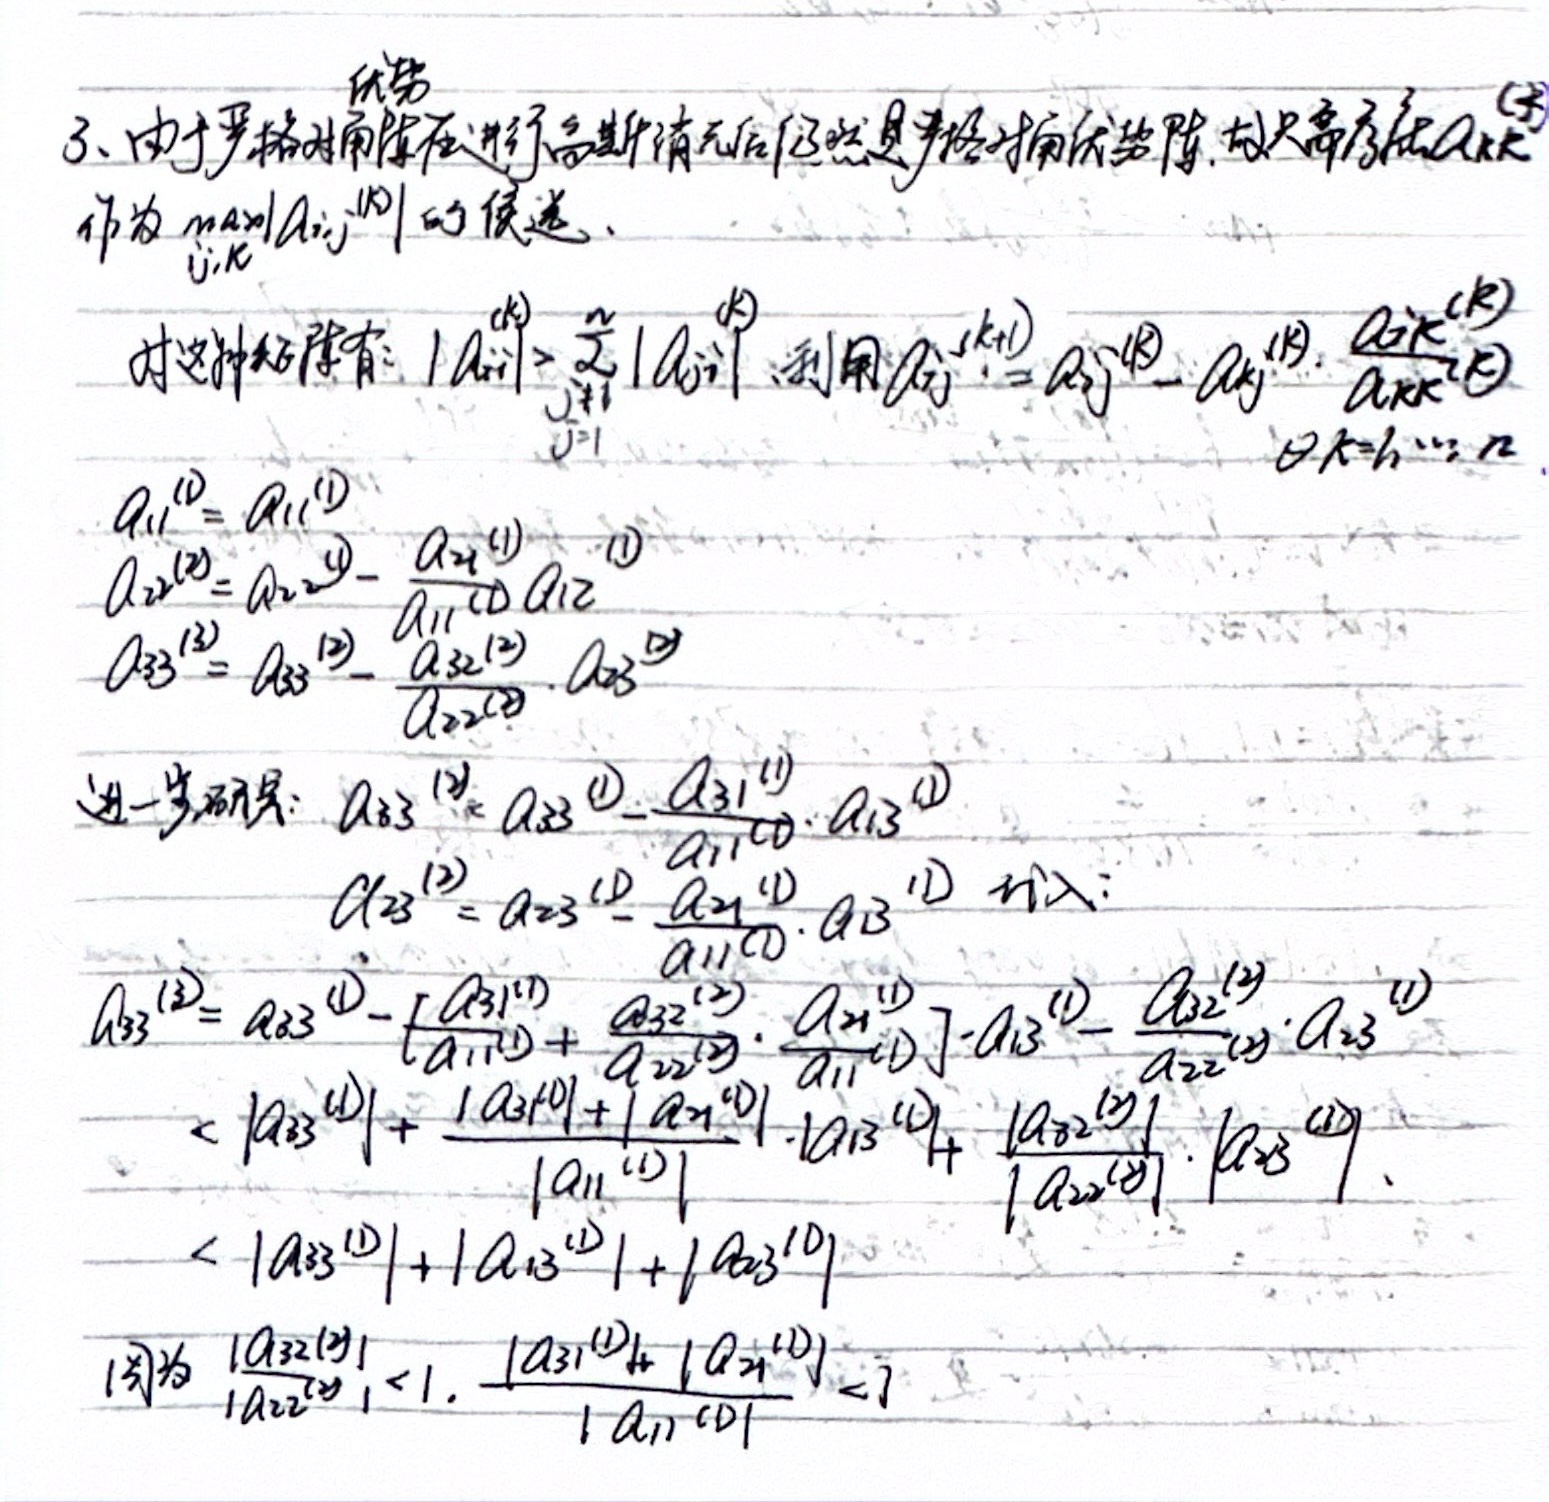 优势
3、由于严格对角阵在进行高斯消元后仍然是严格对角优势阵,故只需考虑a_{kk}^{(k)}
作为 max_{i,j,k}|a_{ij}^{(k)}| 的候选.
对这种矩阵有: |a_{ii}^{(k)}| > \sum_{j≠i, j=1}^{n} |a_{ji}^{(k)}| ,利用 a_{ij}^{(k+1)} = a_{ij}^{(k)} - a_{kj}^{(k)} · \frac{a_{ik}^{(k)}}{a_{kk}^{(k)}}
k=1, ..., n
a_{11}^{(1)} = a_{11}^{(1)}
a_{22}^{(2)} = a_{22}^{(1)} - \frac{a_{21}^{(1)}}{a_{11}^{(1)}} a_{12}^{(1)}
a_{33}^{(3)} = a_{33}^{(2)} - \frac{a_{32}^{(2)}}{a_{22}^{(2)}} · a_{23}^{(2)}
进一步研究: a_{33}^{(2)} = a_{33}^{(1)} - \frac{a_{31}^{(1)}}{a_{11}^{(1)}} · a_{13}^{(1)}
a_{23}^{(2)} = a_{23}^{(1)} - \frac{a_{21}^{(1)}}{a_{11}^{(1)}} · a_{13}^{(1)} 代入:
a_{33}^{(3)} = a_{33}^{(1)} - [\frac{a_{31}^{(1)}}{a_{11}^{(1)}} + \frac{a_{32}^{(2)}}{a_{22}^{(2)}} · \frac{a_{21}^{(1)}}{a_{11}^{(1)}}] · a_{13}^{(1)} - \frac{a_{32}^{(2)}}{a_{22}^{(2)}} · a_{23}^{(1)}
< |a_{33}^{(1)}| + \frac{|a_{31}^{(1)}| + |a_{21}^{(1)}|}{|a_{11}^{(1)}|} · |a_{13}^{(1)}| + \frac{|a_{32}^{(2)}|}{|a_{22}^{(2)}|} · |a_{23}^{(1)}| .
< |a_{33}^{(1)}| + |a_{13}^{(1)}| + |a_{23}^{(1)}|
因为 \frac{|a_{32}^{(2)}|}{|a_{22}^{(2)}|} < 1 . \frac{|a_{31}^{(1)}| + |a_{21}^{(1)}|}{|a_{11}^{(1)}|} < 1